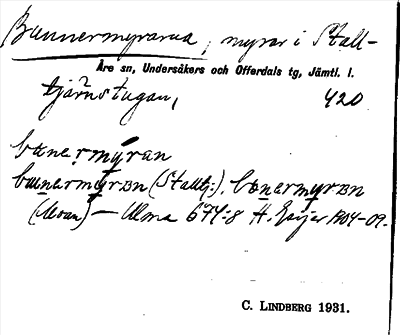 Bunnermyrarna, myrar i Stall-
Åre sn, Undersåkers och Offerdals tg, Jämtl. l.
tjärnstugan, 420
bunermyran
bunermyrɪn (Stalltj:), bunermyrɪn
(Moan) — Ulma 674:8 H. Geijer 1904-09.
C. LINDBERG 1931.